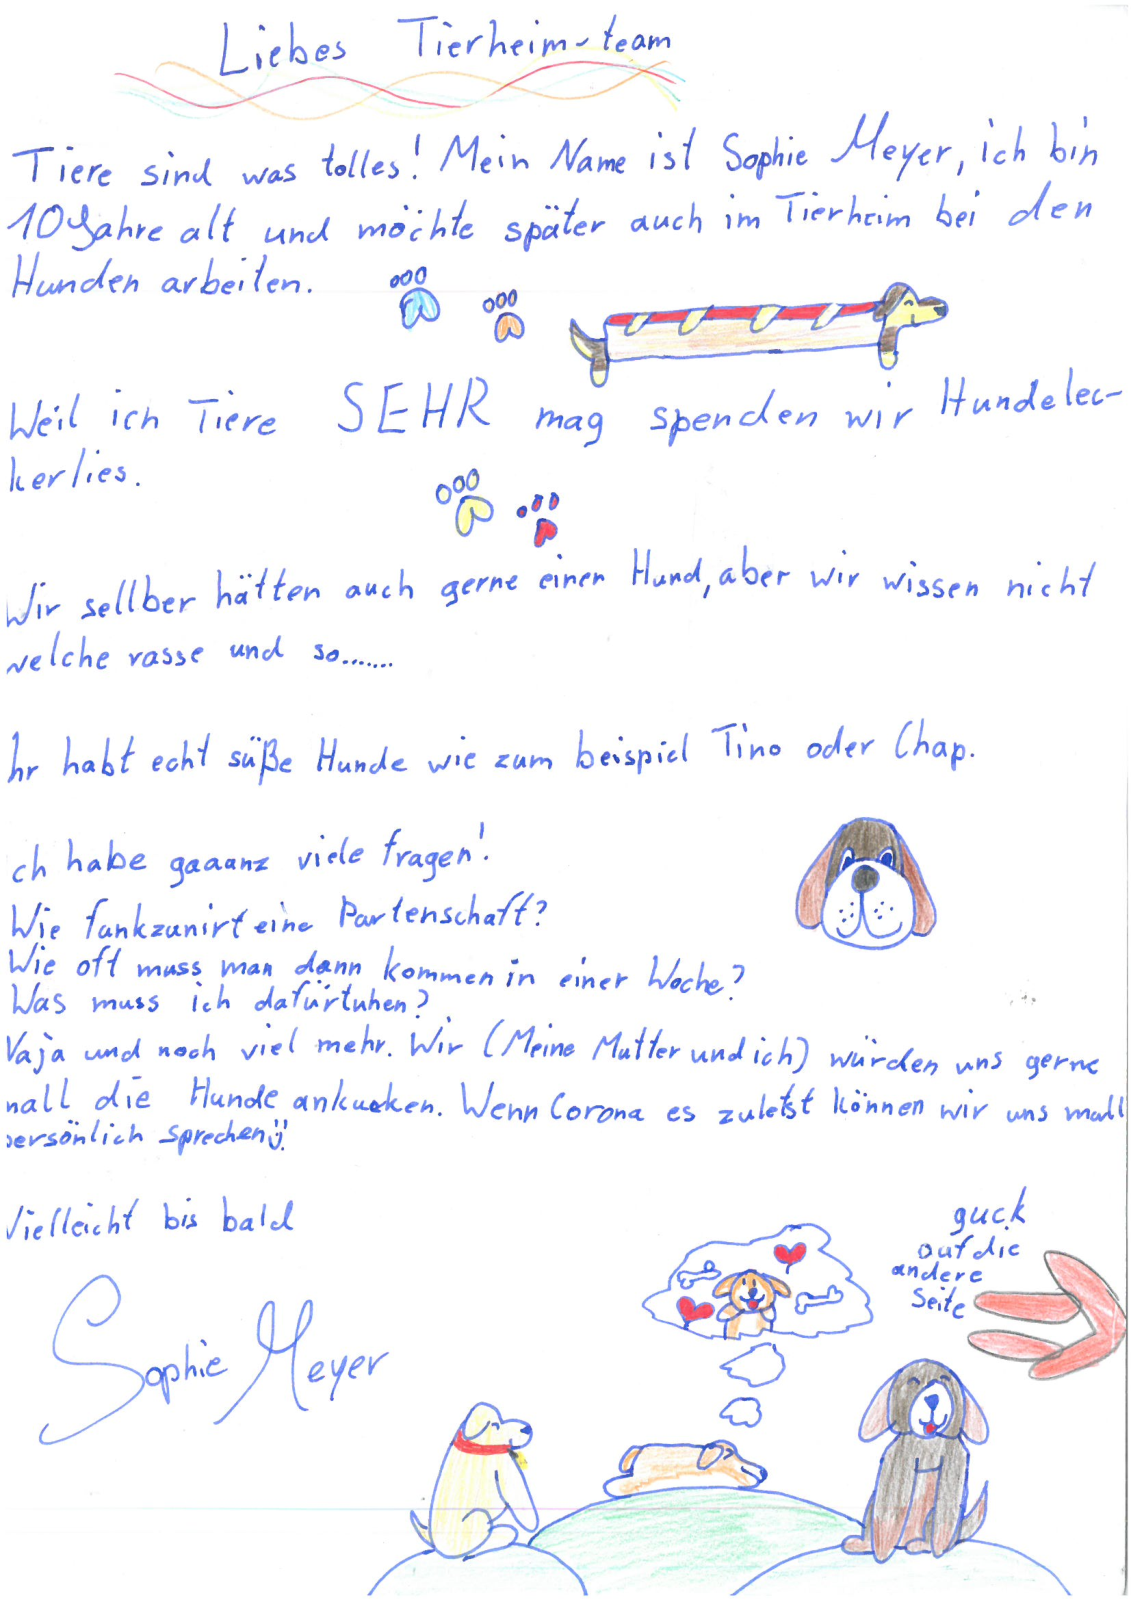 Liebes Tierheim-team
Tiere sind was tolles! Mein Name ist Sophie Meyer, ich bin
10 Jahre alt und möchte später auch im Tierheim bei den
Hunden arbeiten.
Weil ich Tiere SEHR mag spenden wir Hundelec-
kerlies.
Wir sellber hätten auch gerne einen Hund, aber wir wissen nicht
welche rasse und so.......
Ihr habt echt süße Hunde wie zum beispiel Tino oder Chap.
ch habe gaaanz viele fragen!
Wie funkzunirt eine Partenschaft?
Wie oft muss man dann kommen in einer Woche?
Was muss ich dafürtuhen?
Naja und noch viel mehr. Wir (Meine Mutter und ich) würden uns gerne
mall die Hunde ankucken. Wenn Corona es zuletst können wir uns mall
persönlich sprechen!!
Vielleicht bis bald
guck
auf die
andere
Seite
Sophie Meyer